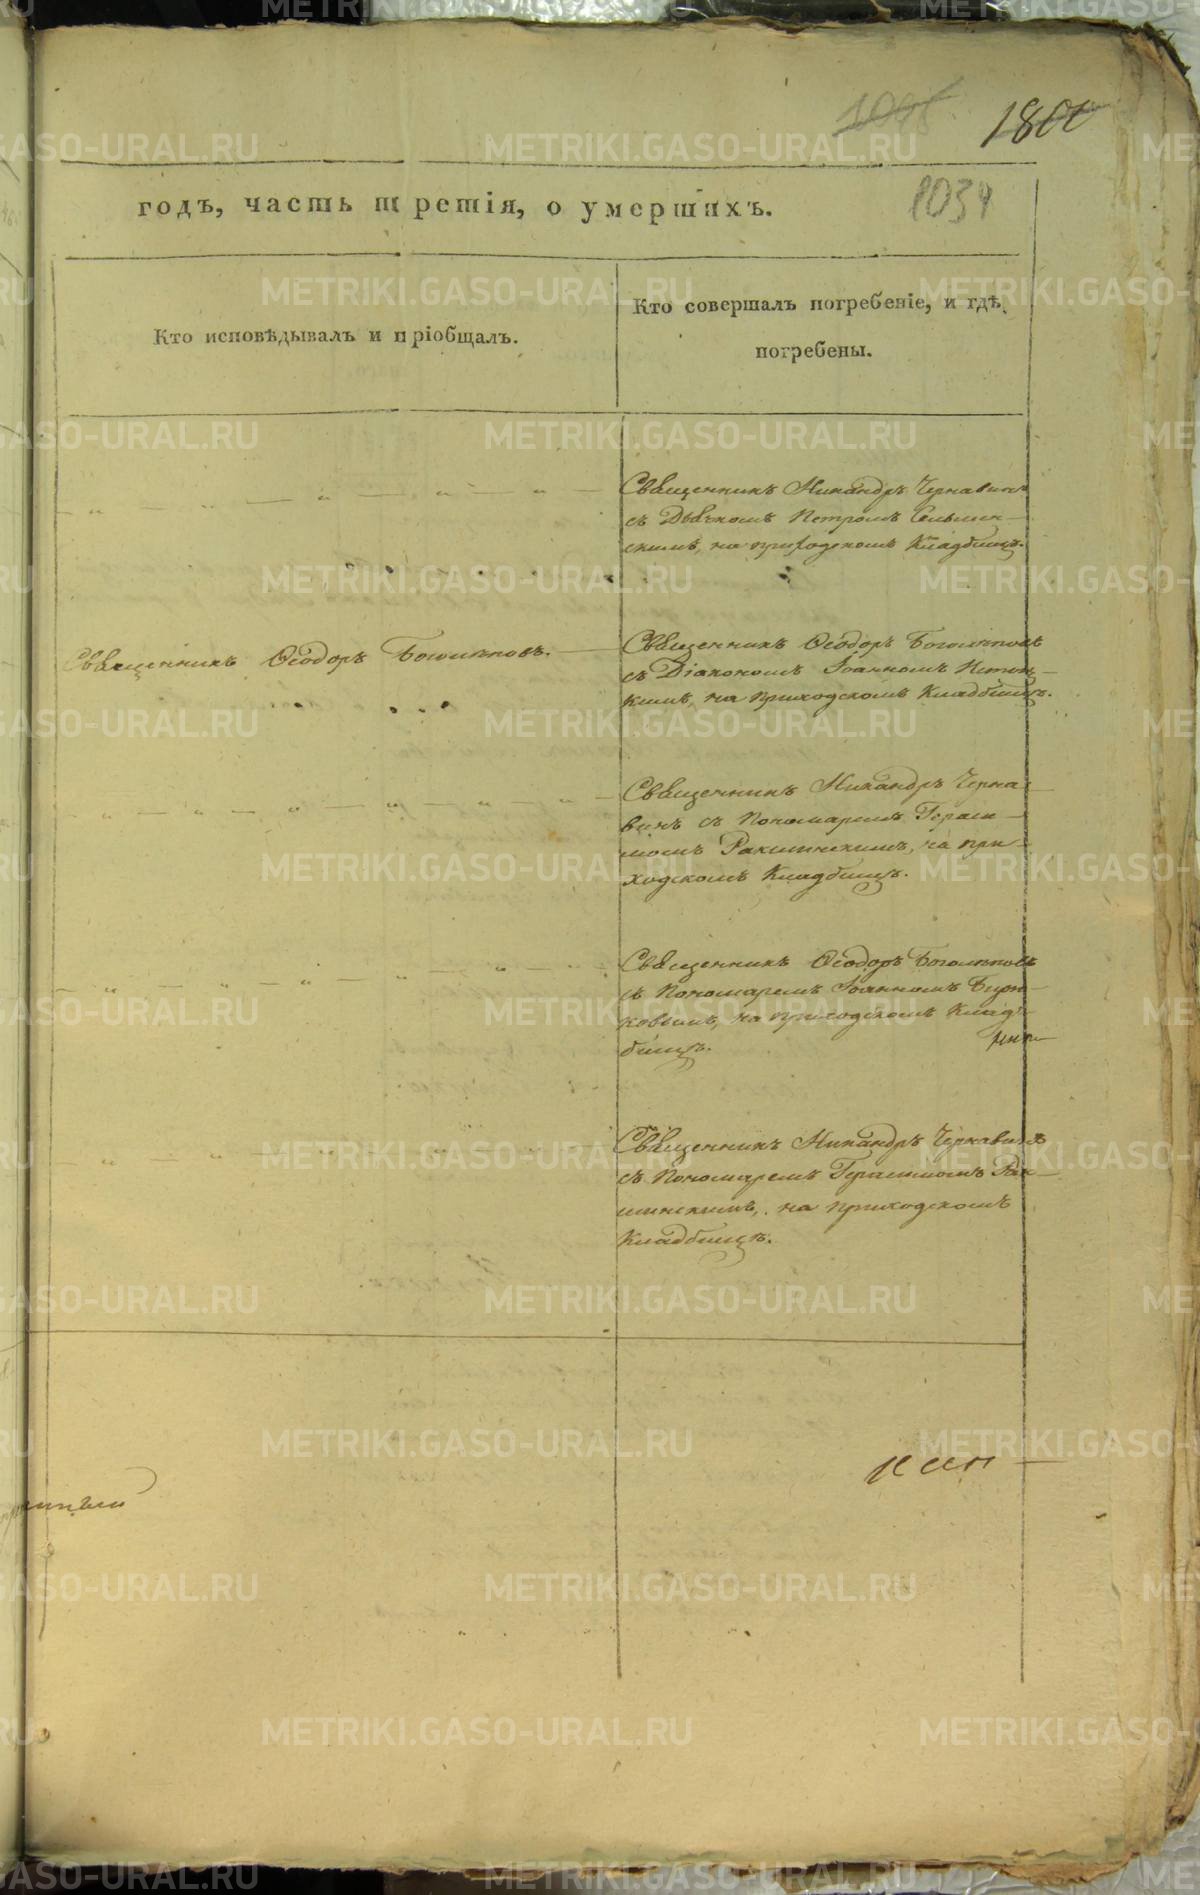 1034
годъ, часть третія, о умершихъ.
Кто исповѣдывалъ и пріобщалъ.
Кто совершалъ погребеніе, и гдѣ
погребены.
Священникъ Никандръ Чернавинъ
съ Дьячкомъ Петромъ
скимъ, на приходскомъ Кладбищѣ.
Священникъ Ѳеодоръ Боголѣповъ.
Священникъ Ѳеодоръ Боголѣповъ
съ Діакономъ Іоанномъ
кимъ, на приходскомъ Кладбищѣ.
Священникъ Никандръ Черна-
винъ съ Пономаремъ Гераси-
момъ Ракшинскимъ, на при-
ходскомъ Кладбищѣ.
Священникъ Ѳеодоръ Боголѣповъ
съ Пономаремъ Іоанномъ
ковымъ, на приходскомъ Клад-
бищѣ.
Священникъ Никандръ Чернавинъ
съ Пономаремъ Герасимомъ Рак-
шинскимъ, на приходскомъ
Кладбищѣ.
METRIKI.GASO-URAL.RU